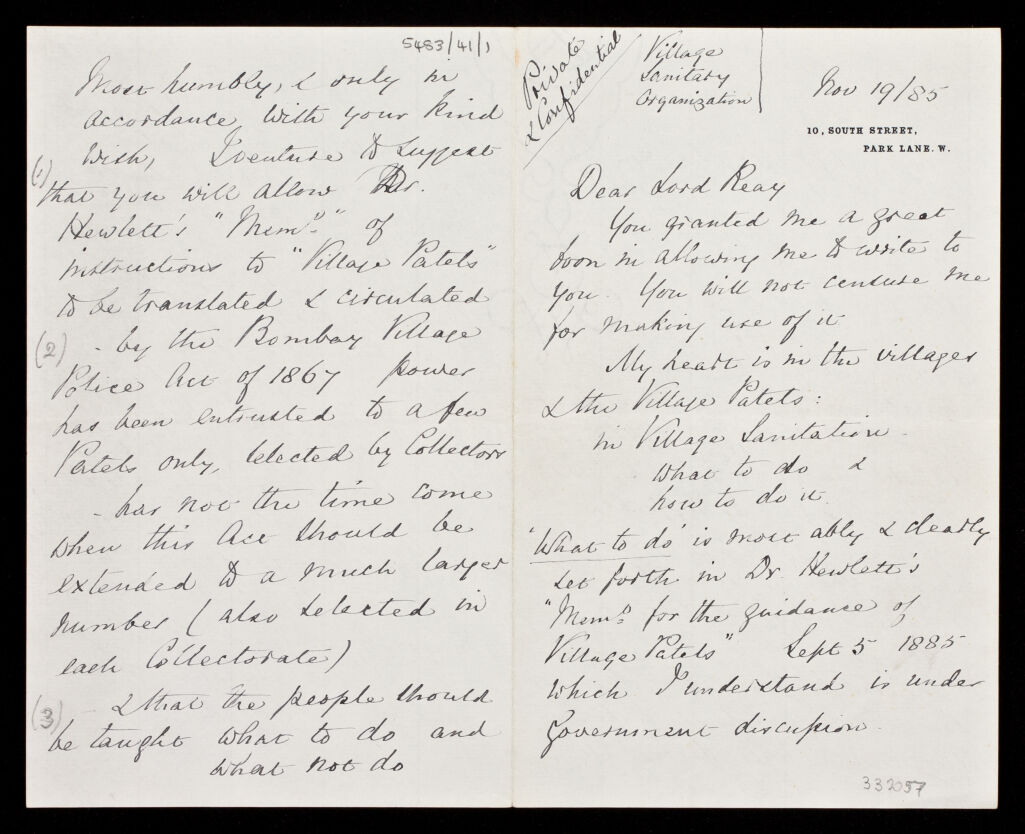 Private
& Confidential
Village
Sanitary
Organization
Nov 19/85
10, SOUTH STREET,
PARK LANE. W.
Dear Lord Reay
You granted me a great
boon in allowing me to write to
you. You will not censure me
for making use of it
My heart is in the villages
& the Village Patels:
in Village Sanitation -
what to do &
how to do it.
'What to do' is most ably & clearly
set forth in Dr. Hewlett's
"Memo: for the guidance of
Village Patels" Sept 5 1885
which I understand is under
Government discussion.
332057
5483/41/1
Most humbly, & only in
accordance with your kind
wish, I venture to suggest
(1)
that you will allow Dr.
Hewlett's "Memo:" of
instructions to "Village Patels"
to be translated & circulated
(2)
- by the Bombay Village
Police Act of 1867 power
has been entrusted to a few
Patels only, selected by Collectors
- has not the time come
when this Act should be
extended to a much larger
number (also selected in
each Collectorate)
(3)
- & that the people should
be taught what to do and
what not do